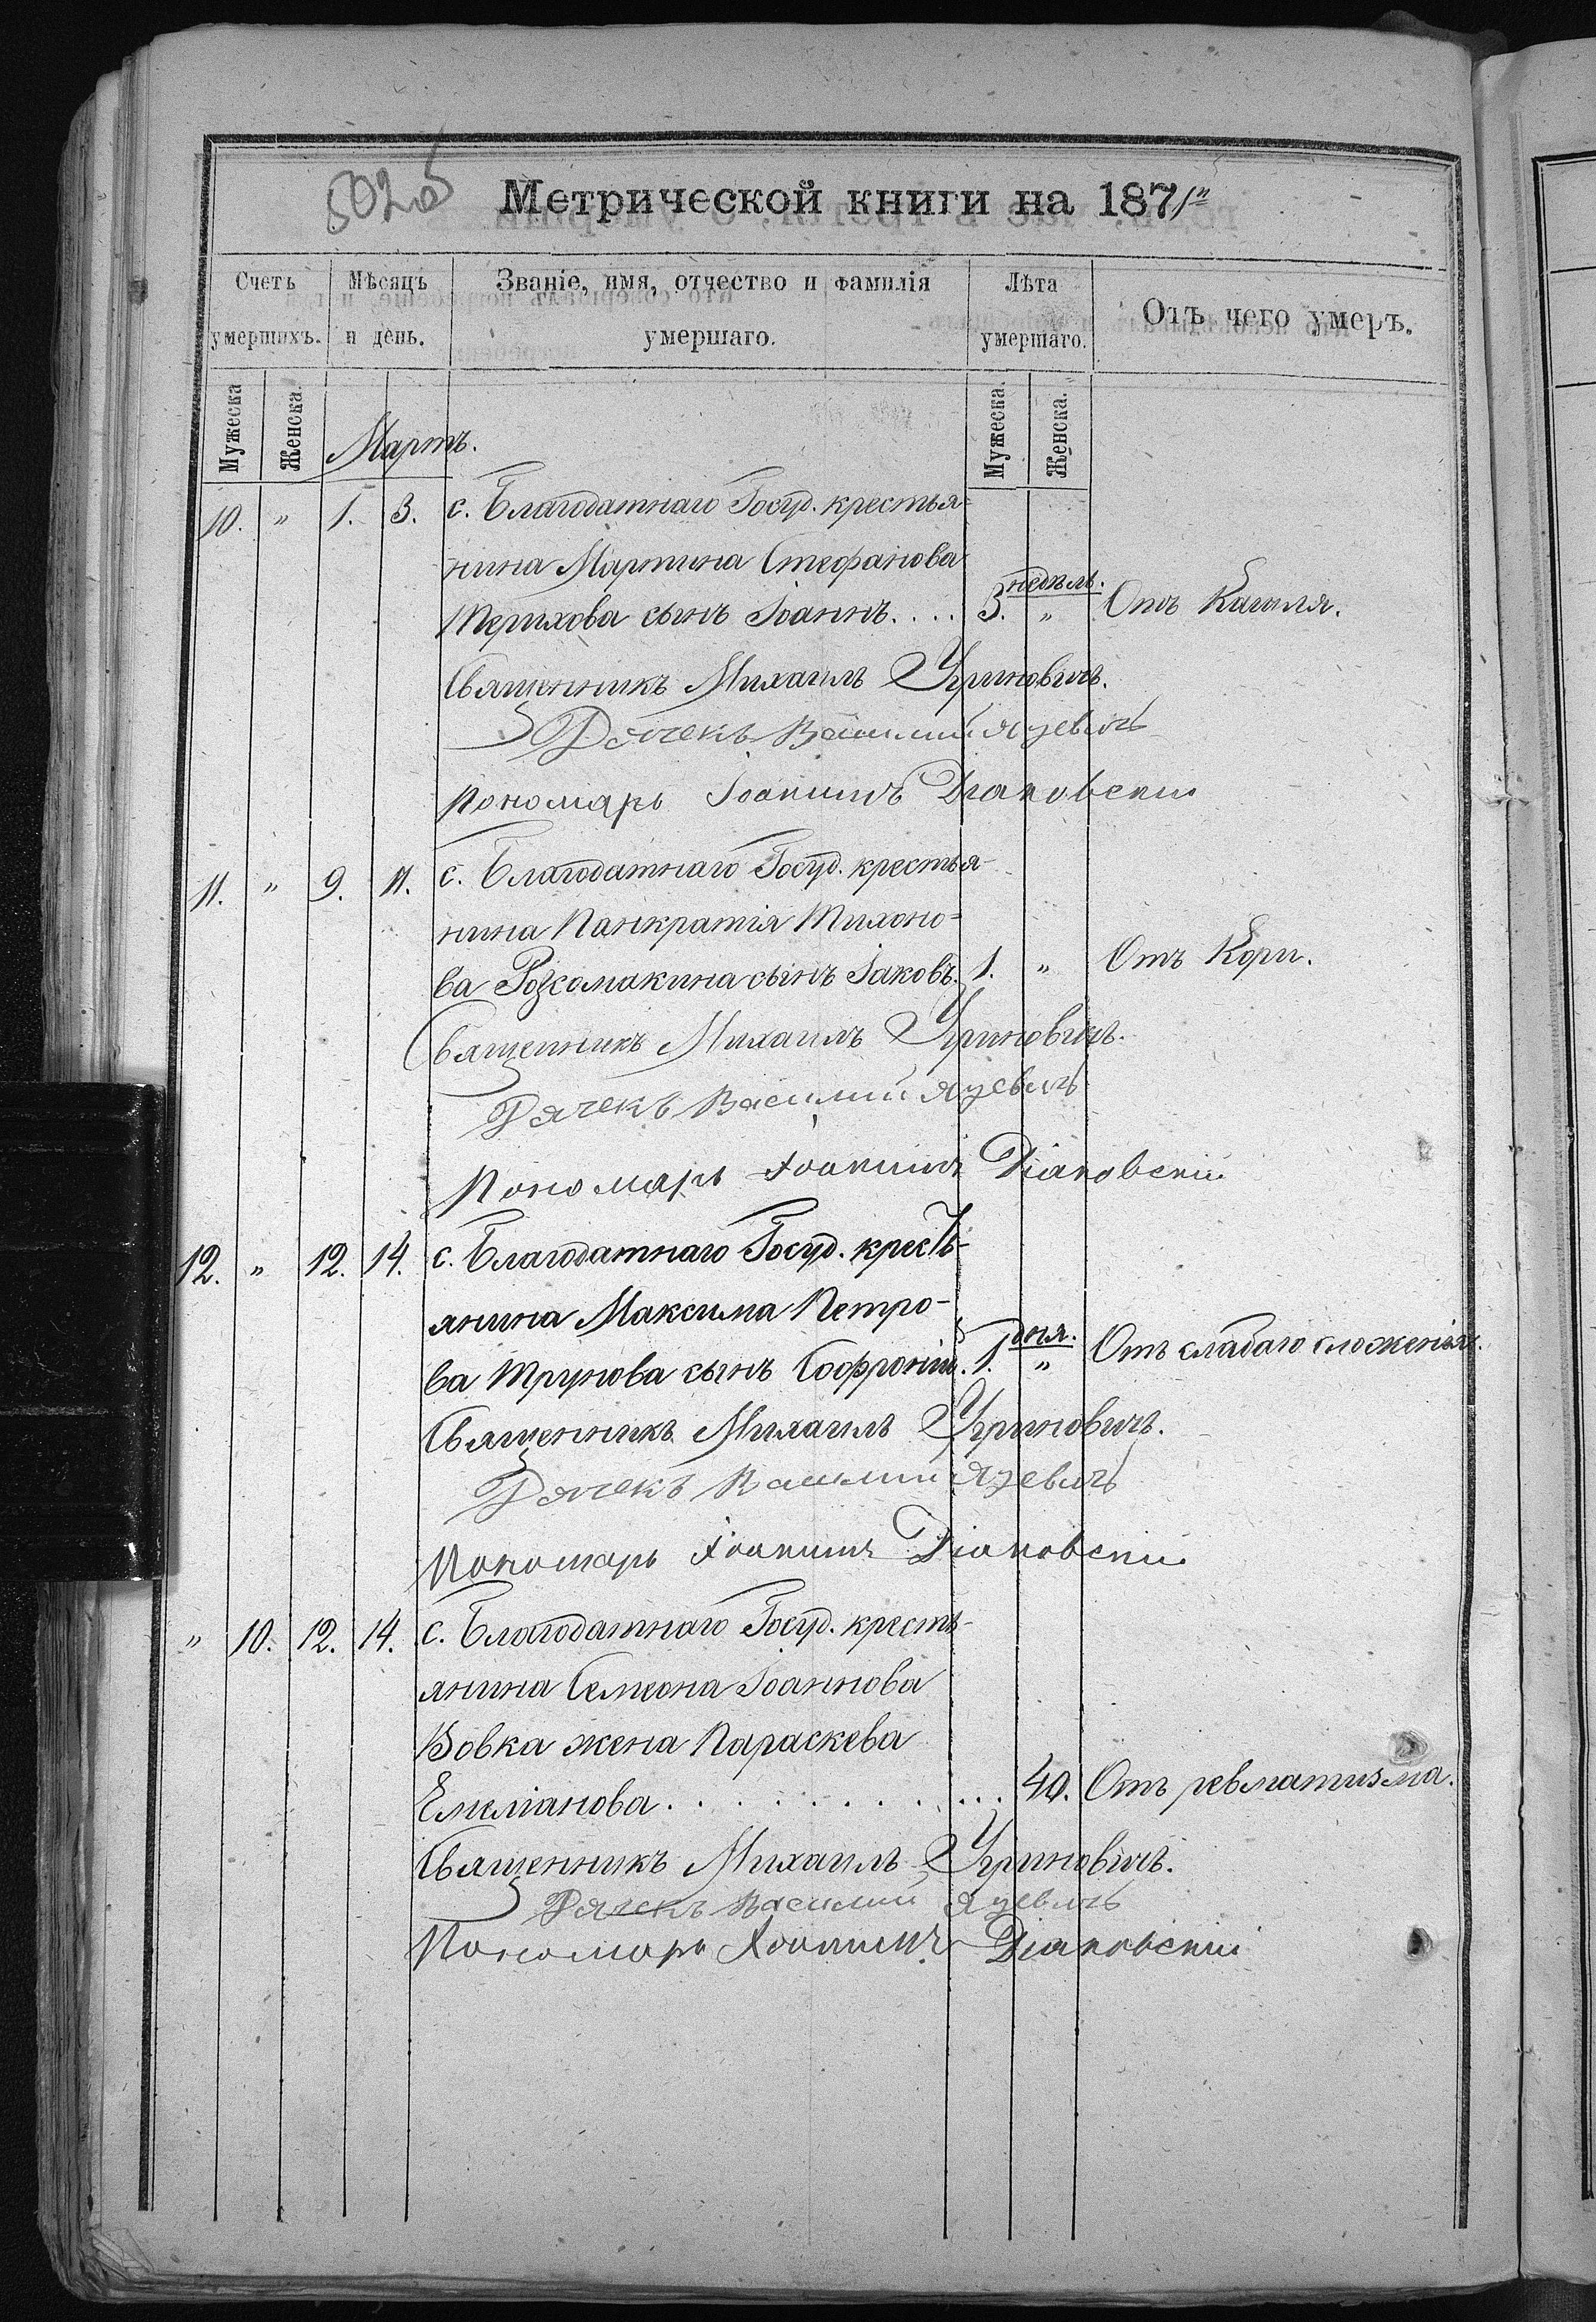 502об
Метрической книги на 1871й
Счетъ умершихъ.
Мѣсяцъ и день.
Званіе, имя, отчество и фамилія умершаго.
Лѣта умершаго.
Отъ чего умеръ.
Мужеска
Женска.
Мужеска.
Женска.
Мартъ.
10. " 1. 3. с. Благодатнаго Госуд. крестья-
нина Мартина Стефанова
недѣль.
Терихова сынъ Іоаннъ. . . . 3. " Отъ Кашля.
Священникъ Михаилъ Угриновичъ.
Дячекъ Василий Язевичь
Пономарь Іоакимъ Діаковскій
11. " 9. 11. с. Благодатнаго Госуд. крестья-
нина Панкратія Тихоно-
ва сынъ Іаковъ. 1. " Отъ Кори.
Священникъ Михаилъ Угриновичъ.
Дячекъ Василий Язевичь
Пономарь Іоакимъ Діаковскій
12. " 12. 14. с. Благодатнаго Госуд. кресть-
янина Максима Петро-
дня.
ва Трунова сынъ Софроній. 1. " Отъ слабаго сложенья.
Священникъ Михаилъ Угриновичъ.
Дячекъ Василий Язевичь
Пономарь Іоакимъ Діаковскій
" 10. 12. 14. с. Благодатнаго Госуд. кресть-
янина Семеона Іоаннова
Вовка жена Параскева
Емеліанова. . . . . . . . . . . . 40. Отъ ревматизма.
Священникъ Михаилъ Угриновичъ.
Дячекъ Василий Язевичь
Пономарь Іоакимъ Діаковскій